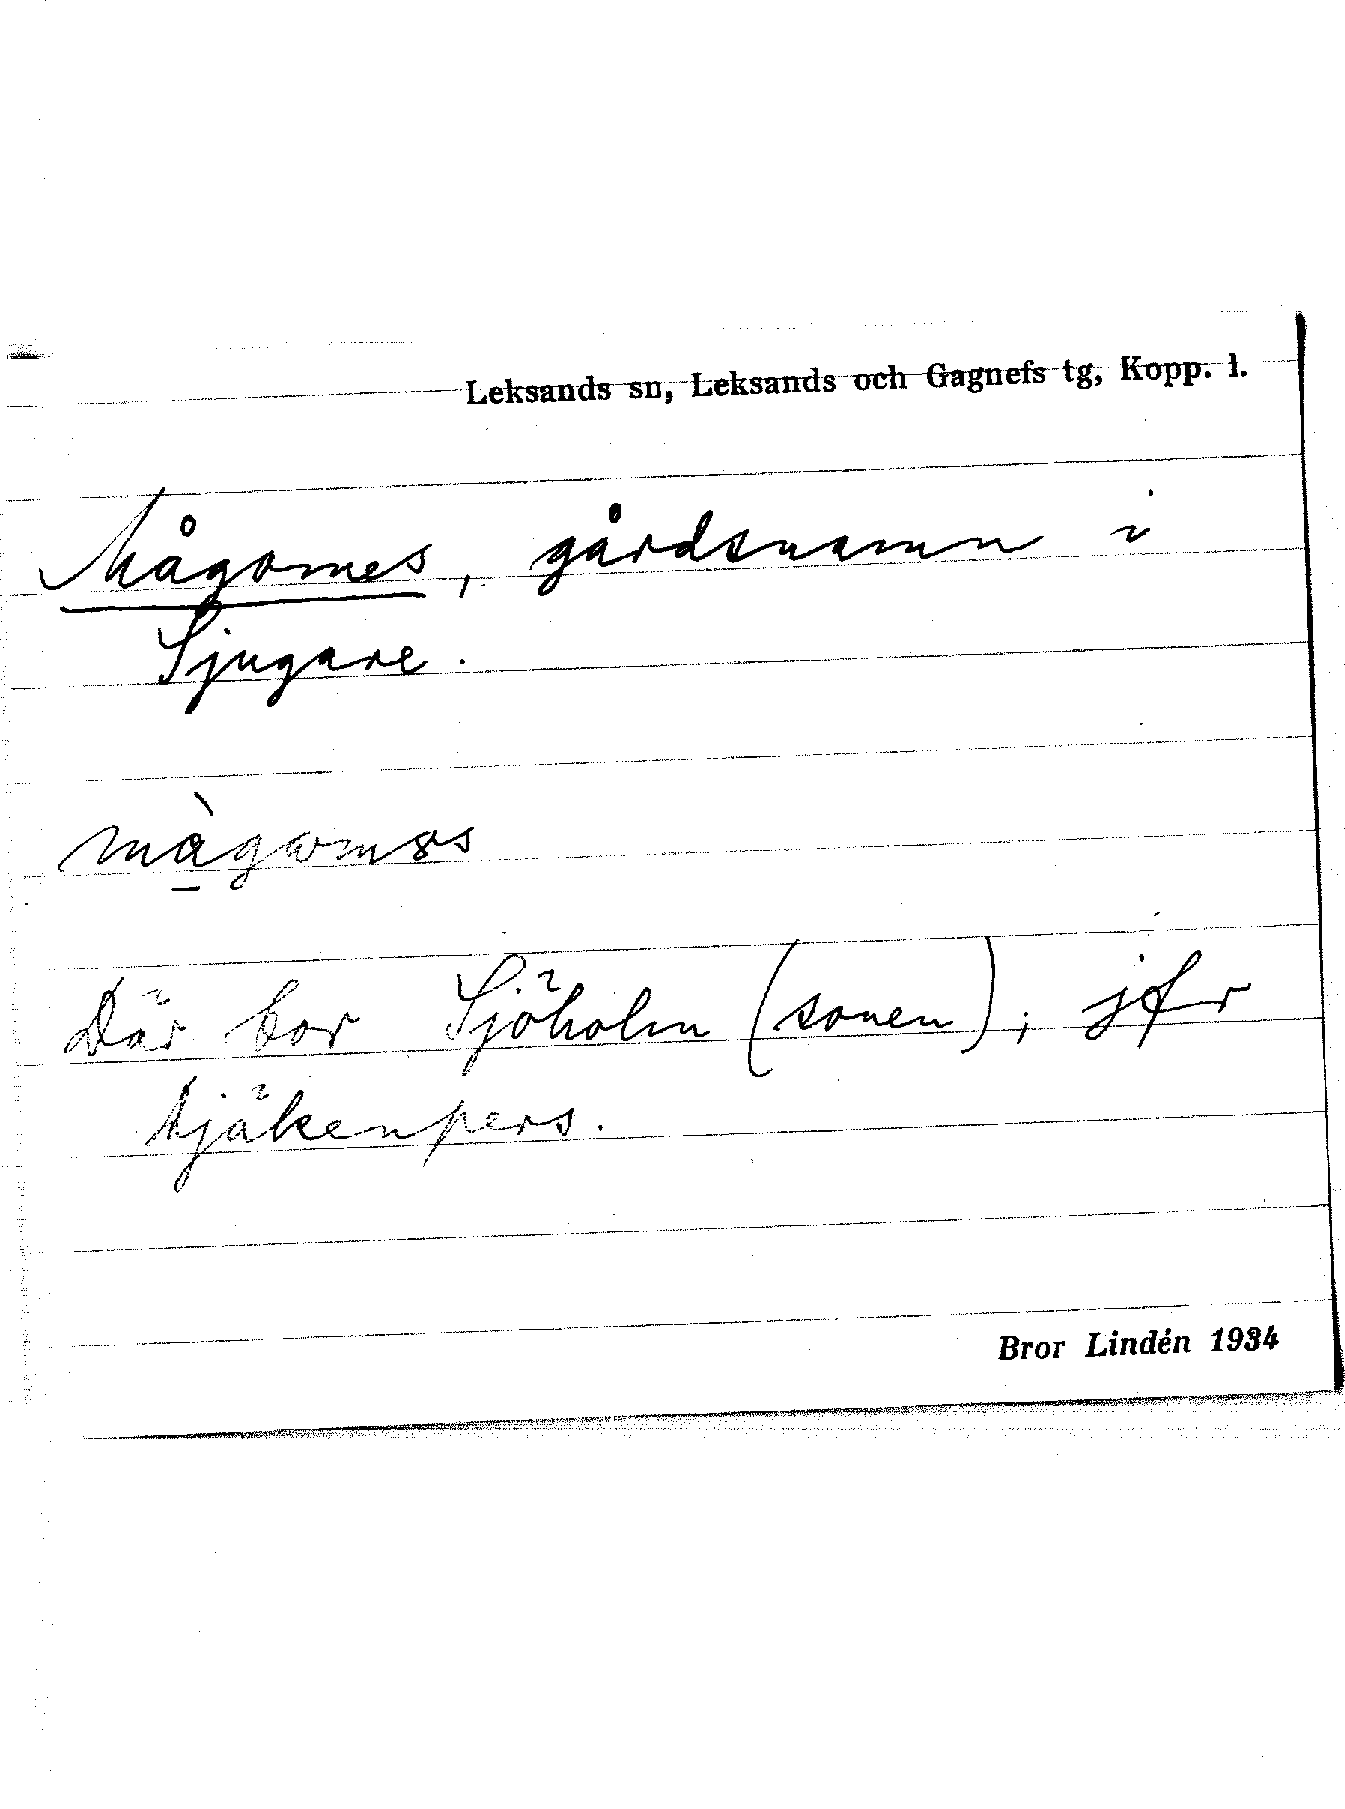 Leksands sn, Leksands och Gagnefs tg, Kopp. l.
Mågomes, gårdsnamn i
Sjugare.
Där bor Sjöholm (sonen); jfr
tjäkenpers.
Bror Lindén 1934